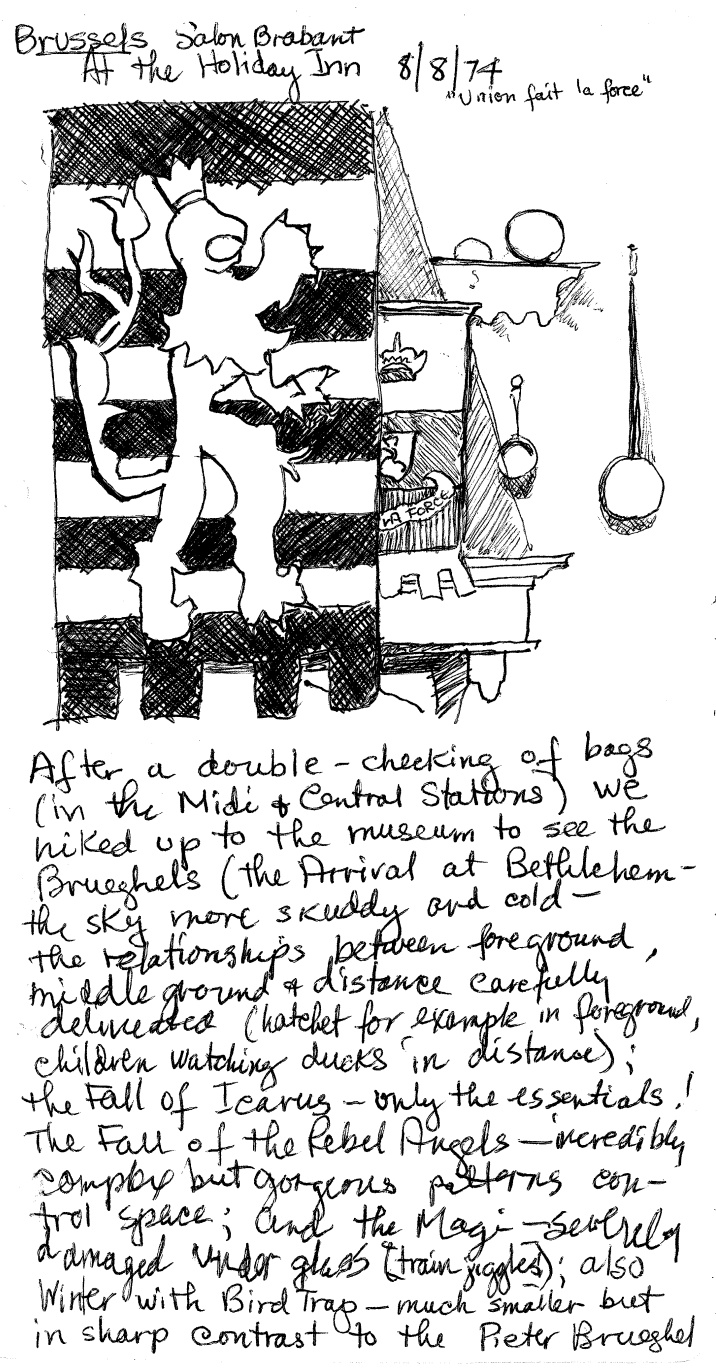 Brussels Salon Brabant
At the Holiday Inn
8/8/74
"Union fait la force"
LA FORCE
After a double-checking of bags
(in the Midi & Central Stations) we
hiked up to the museum to see the
Brueghels (the Arrival at Bethlehem -
the sky more skuddy and cold -
the relationships between foreground,
middleground & distance carefully
delineated (hatchet for example in foreground,
children watching ducks in distance);
the Fall of Icarus - only the essentials!
The Fall of the Rebel Angels - incredibly
complex but gorgeous patterns con-
trol space; and the Magi - severely
damaged under glass (train jiggles); also
Winter with Bird Trap - much smaller but
in sharp contrast to the Pieter Brueghel